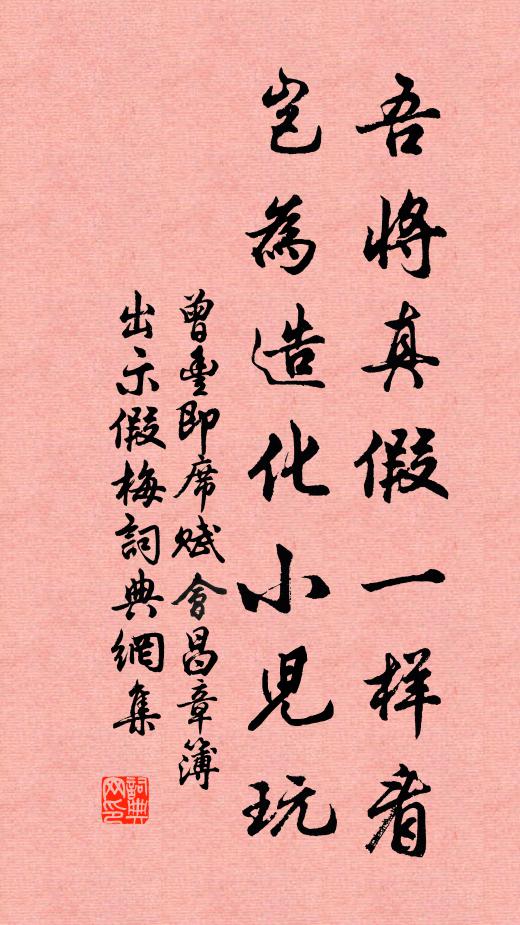 吾將真假一样看
岂為造化小児玩
曾豊即席赋會昌章簿
出示假梅詞典網集
詞典
网印